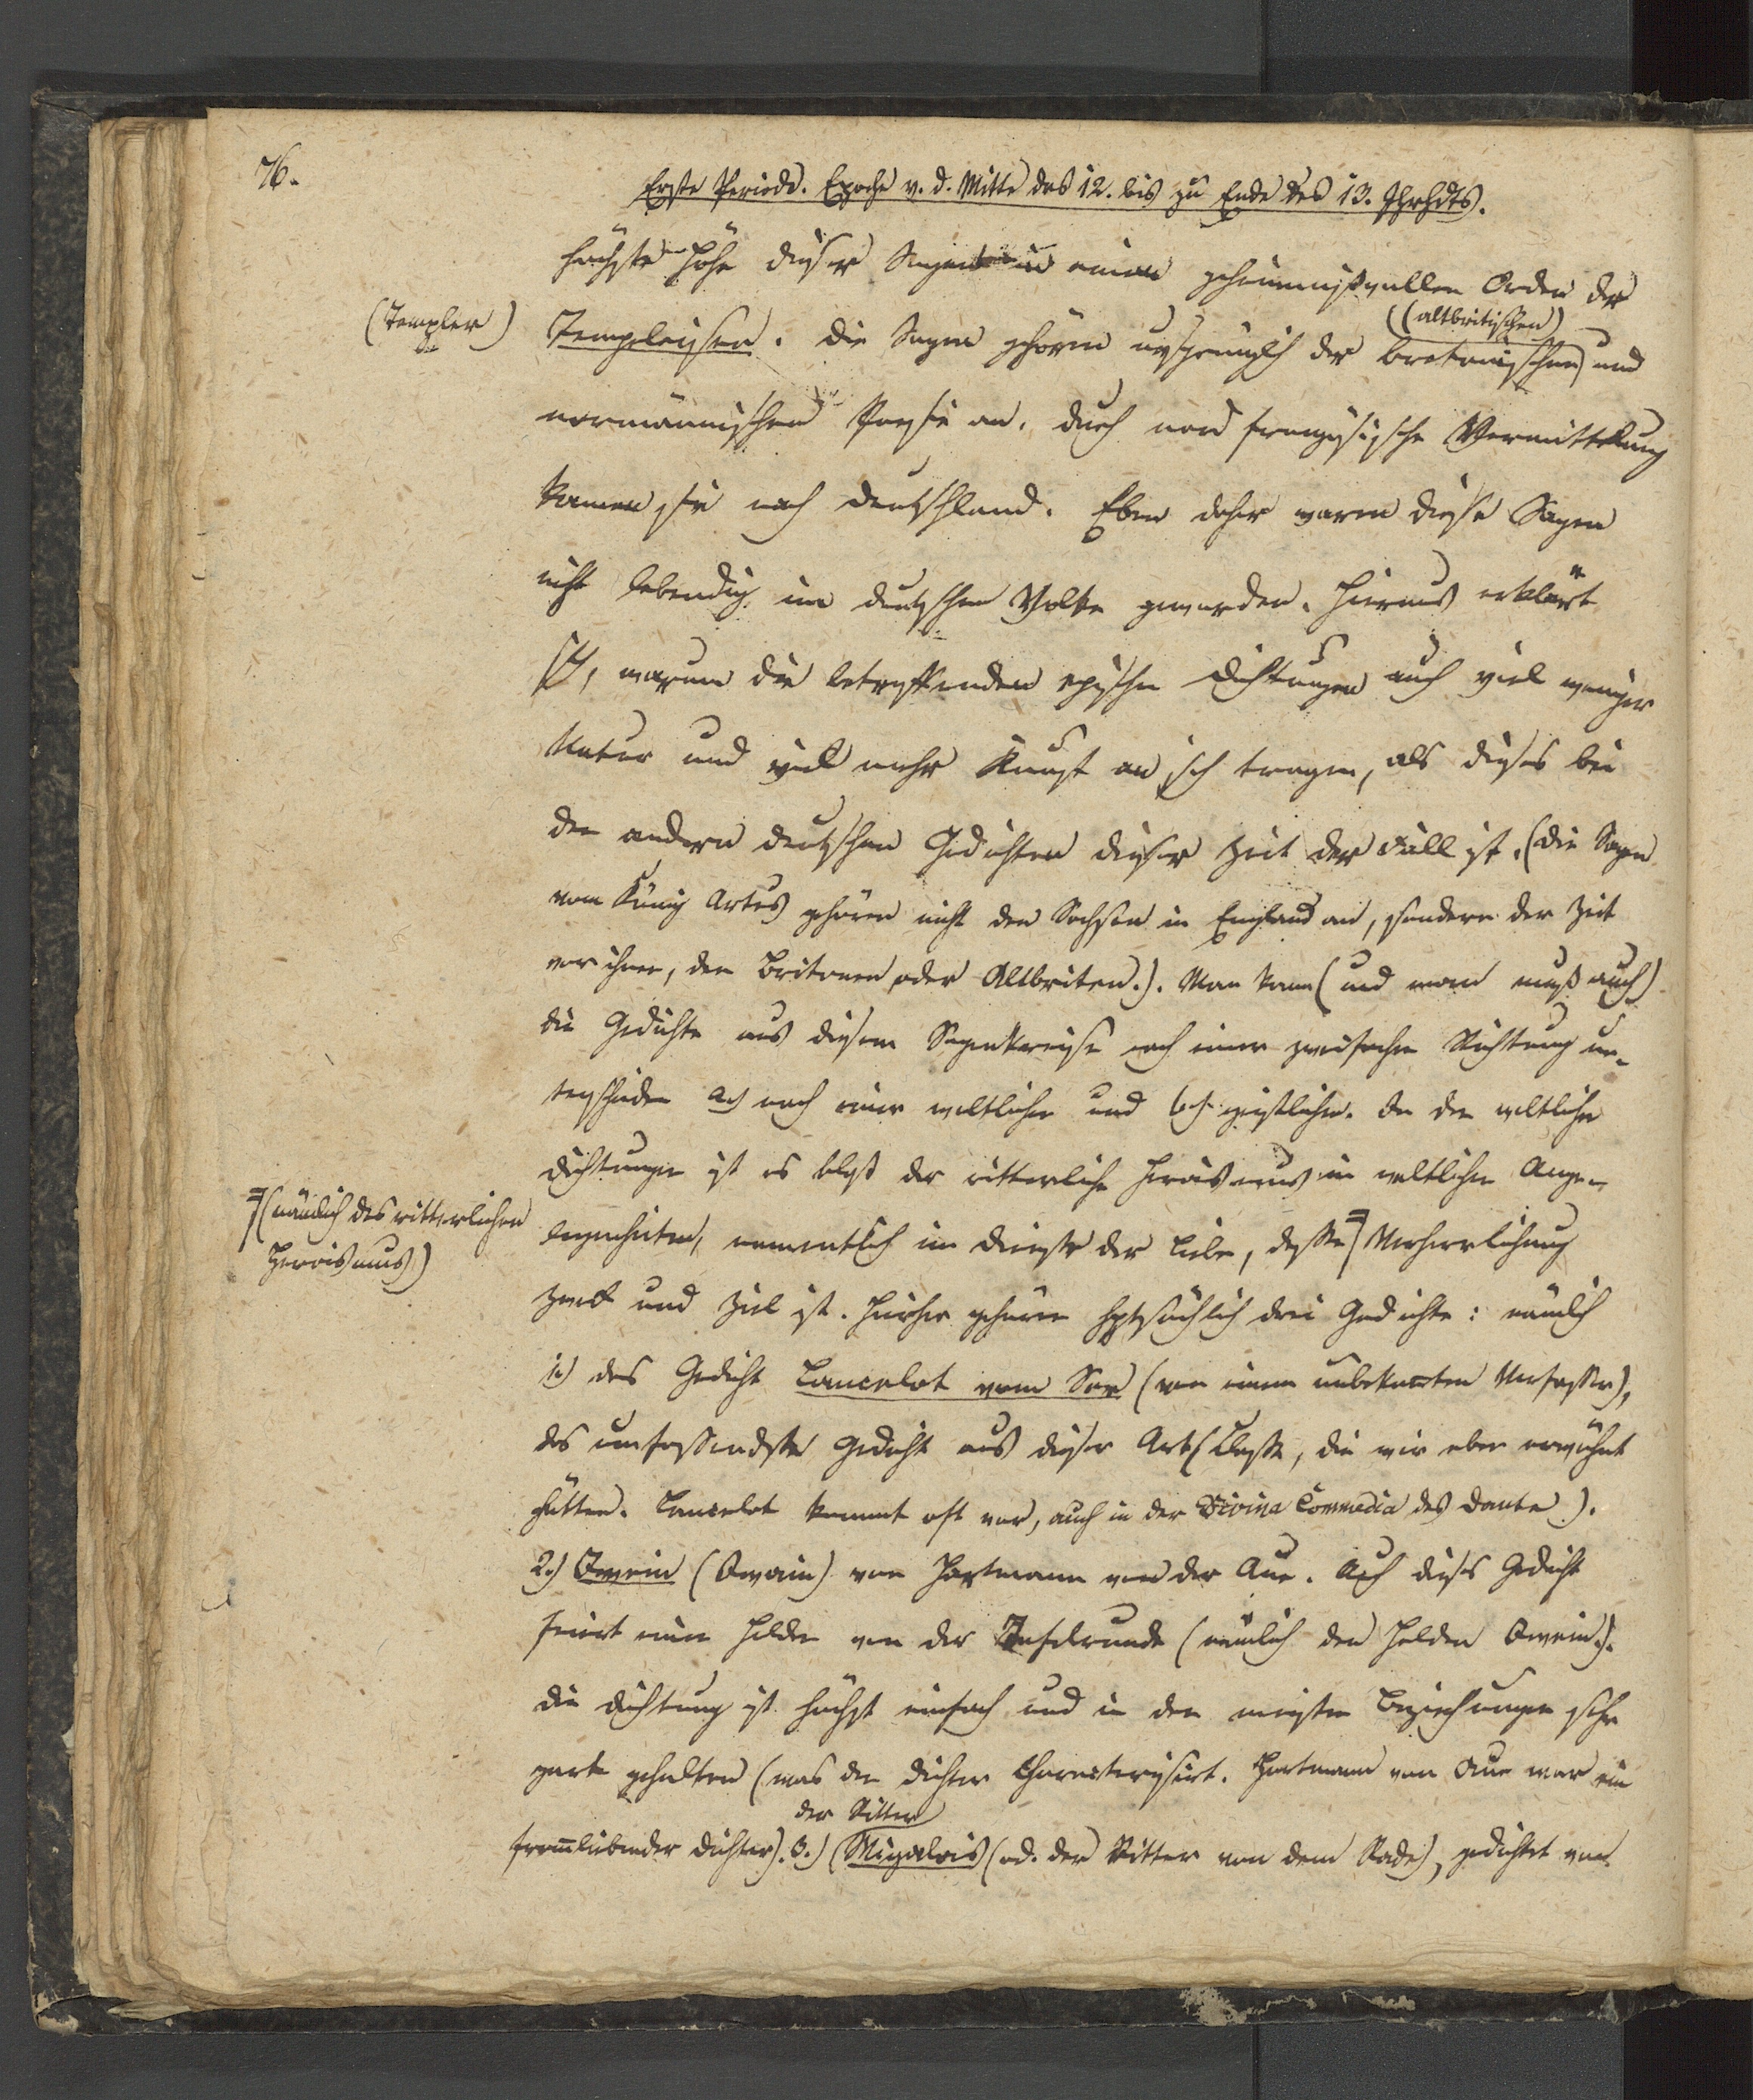 76.
Erste Periode. Epoche v. d. Mitte des 12. bis zu Ende des 13. Jhrhdts.
höchste Höhe dieser Sagen in einem geheimnißvollen Orden der
(Templer)
((altbritischen)
Templeisen. Die Sagen gehören ursprünglich der bretonischen) und
normännischen Poesie an. Durch nord französische Vermittelung
kamen sie nach Deutschland. Eben daher waren diese Sagen
nicht lebendig im deutschen Volke geworden. Hieraus erklärt
sich, warum die betreffenden epischen Dichtungen auch viel weniger
Natur und viel mehr Kunst an sich tragen, als dieses bei
den andern deutschen Gedichten dieser Zeit der Fall ist. (Die Sagen
vom König Artus gehören nicht den Sachsen in England an, sondern der Zeit
vor ihnen, den Britonen oder Altbriten.). Man kann (und man muß auch)
die Gedichte aus diesem Sagenkreise nach einer zweifachen Richtung un-
terscheiden a) nach einer weltlichen und b) geistlichen. In den weltlichen
Dichtungen ist es bloß der ritterliche Heroismus in weltlichen Ange-
(nämlich des ritterlichen
Heroismus)
legenheiten, namentlich im Dienste der Liebe, dessen Verherrlichung
Zweck und Ziel ist. Hierher gehören hptsächlich drei Gedichte: nämlich
1.) das Gedicht Lancelot vom See (von einem unbekannten Verfasser),
das umfassendste Gedicht aus dieser Art (Classe, die wir eben erwähnt
hätten. Lancelot kommt oft vor, auch in der Divina Commedia des Dante).
2.) Iwein (Iwain) von Hartmann von der Aue. Auch dieses Gedicht
feiert einen Helden von der Tafelrunde (nämlich den Helden Iwein.).
Die Dichtung ist höchst einfach und in den meisten Beziehungen sehr
zart gehalten (was den Dichter charakterisirt. Hartmann von Aue war ein
der Ritter
frommliebender Dichter). 3.) (Wigalois (od. der Ritter von dem Rade), gedichtet von